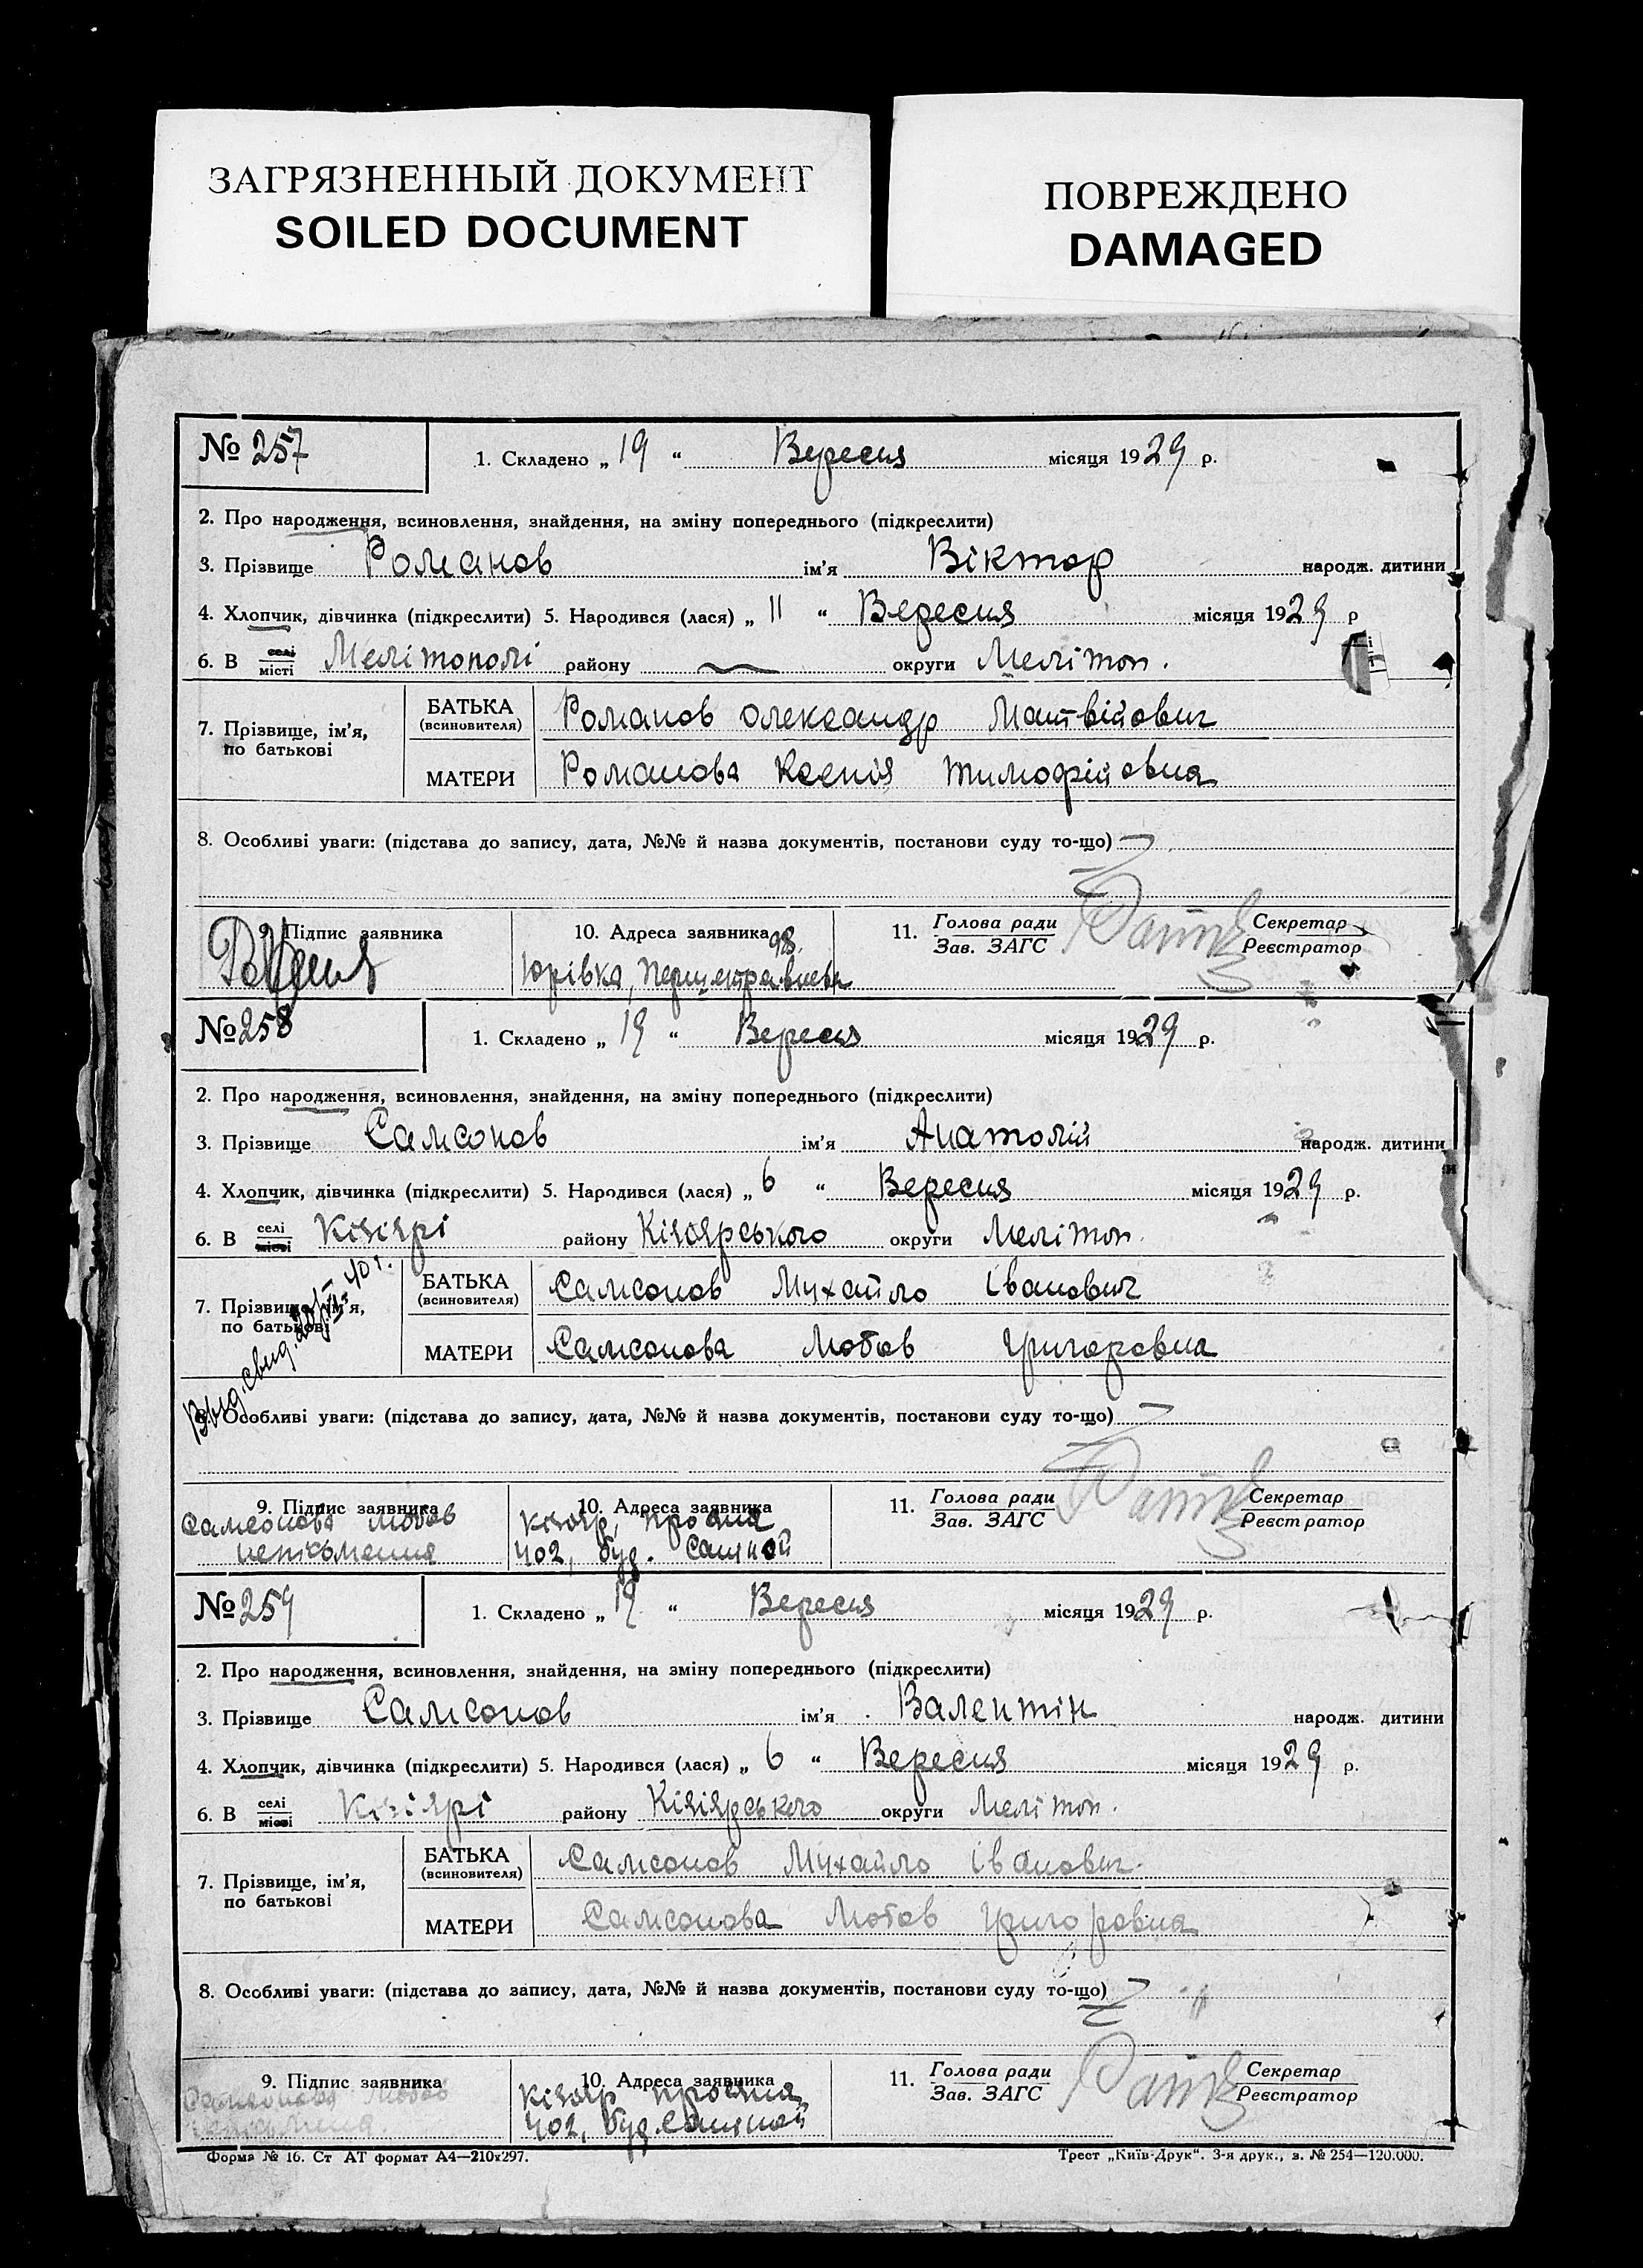 ЗАГРЯЗНЕННЫЙ ДОКУМЕНТ
SOILED DOCUMENT
ПОВРЕЖДЕНО
DAMAGED
№ 257
1. Складено „ 19 “ Вересня місяця 1929 р.
2. Про народження, всиновлення, знайдення, на зміну попереднього (підкреслити)
3. Прізвище Романов ім'я Віктор народж. дитини
4. Хлопчик, дівчинка (підкреслити) 5. Народився (лася) „ 11 “ Вересня місяця 1929 р
6. В селі місті Мелітополі району округи Мелітоп.
7. Прізвище, ім'я, по батькові
БАТЬКА (всиновителя) Романов Олександр Матвійович
МАТЕРИ Романова Ксенія Тимофійовна
8. Особливі уваги: (підстава до запису, дата, №№ й назва документів, постанови суду то-що)
9. Підпис заявника
10. Адреса заявника 98.
Юрівка,
11. Голова ради Зав. ЗАГС Секретар Реєстратор
№ 258
1. Складено „ 19 “ Вересня місяця 1929 р.
2. Про народження, всиновлення, знайдення, на зміну попереднього (підкреслити)
3. Прізвище Самсонов ім'я Анатолій народж. дитини
4. Хлопчик, дівчинка (підкреслити) 5. Народився (лася) „ 6 “ Вересня місяця 1929 р.
6. В селі місті Кізіярі району Кізіярського округи Мелітоп.
7. Прізвище, ім'я, по батькові
БАТЬКА (всиновителя) Самсонов Михайло Іванович
МАТЕРИ Самсонова Любов Григоровна
Выд. свид.
8. Особливі уваги: (підстава до запису, дата, №№ й назва документів, постанови суду то-що)
9. Підпис заявника
Самсонова Любов
неписьменна
10. Адреса заявника
Кізіяр,
402, буд.
11. Голова ради Зав. ЗАГС Секретар Реєстратор
№ 259
1. Складено „ 19 “ Вересня місяця 1929 р.
2. Про народження, всиновлення, знайдення, на зміну попереднього (підкреслити)
3. Прізвище Самсонов ім'я Валентін народж. дитини
4. Хлопчик, дівчинка (підкреслити) 5. Народився (лася) „ 6 “ Вересня місяця 1929 р.
6. В селі місті Кізіярі району Кізіярського округи Мелітоп.
7. Прізвище, ім'я, по батькові
БАТЬКА (всиновителя) Самсонов Михайло Іванович
МАТЕРИ Самсонова Любов Григоровна
8. Особливі уваги: (підстава до запису, дата, №№ й назва документів, постанови суду то-що)
9. Підпис заявника
Самсонова Любов
10. Адреса заявника
Кізіяр
402, буд.
11. Голова ради Зав. ЗАГС Секретар Реєстратор
Форма № 16. Ст АТ формат А4—210х297.
Трест „Київ-Друк“. 3-я друк., з. № 254—120.000.